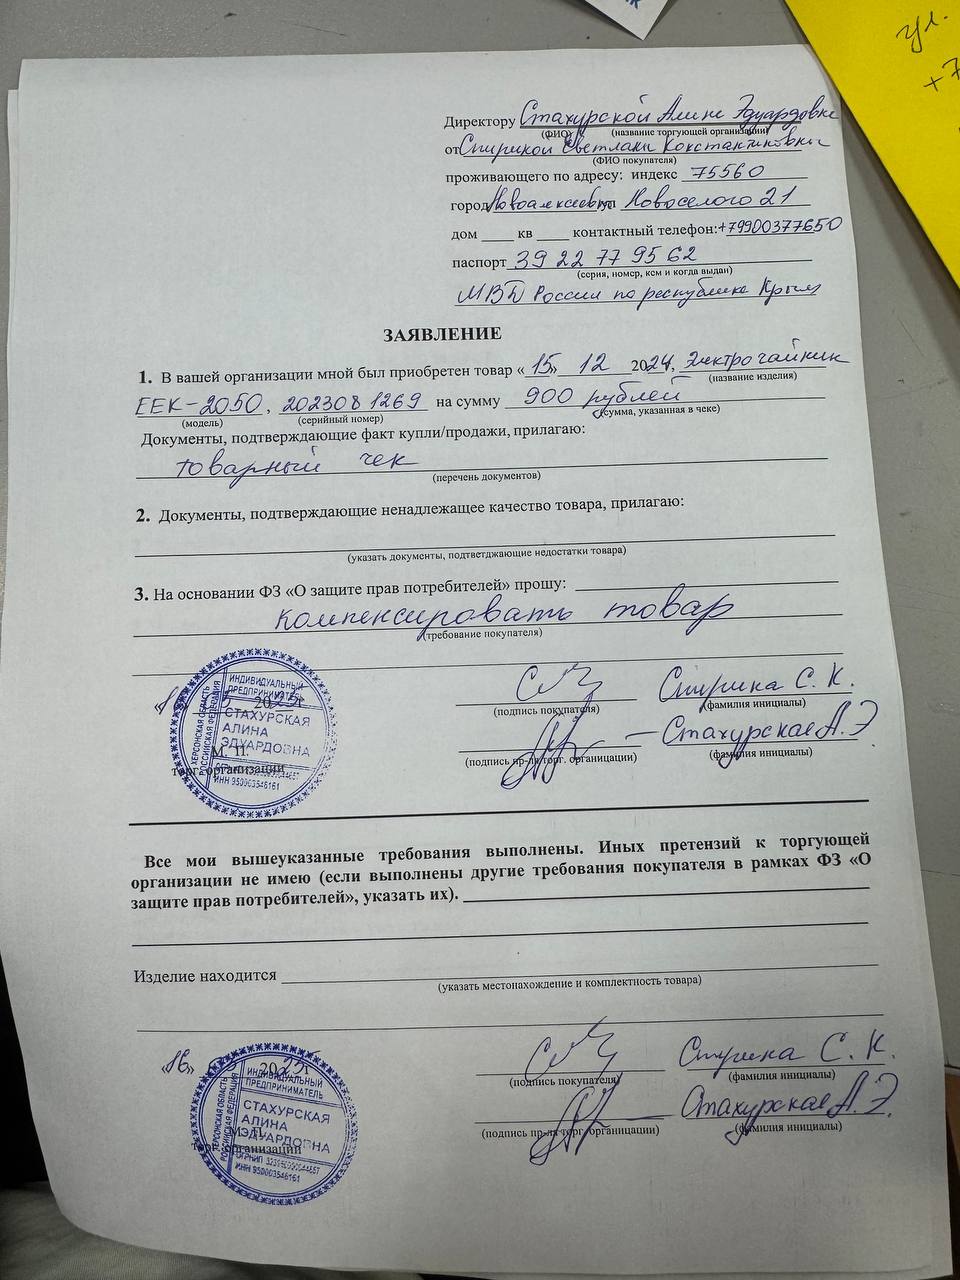 ул.
+7
Директору Стахурской Алине Эдуардовне
(ФИО) (название торгующей организации)
от Спириной Светланы Константиновны
(ФИО покупателя)
проживающего по адресу: индекс 75560
город Новоалексеевка Новоселого 21
дом ____ кв ____ контактный телефон: +79900377650
паспорт 39 22 77 95 62
(серия, номер, кем и когда выдан)
МВД России по республике Крым
ЗАЯВЛЕНИЕ
1. В вашей организации мной был приобретен товар « 15 » 12 2024, Электрочайник
(название изделия)
EEK-2050, 2023081269 на сумму 900 рублей
(модель) (серийный номер) (сумма, указанная в чеке)
Документы, подтверждающие факт купли/продажи, прилагаю:
товарный чек
(перечень документов)
2. Документы, подтверждающие ненадлежащее качество товара, прилагаю:
(указать документы, подтветджающие недостатки товара)
3. На основании ФЗ «О защите прав потребителей» прошу:
компенсировать товар
(требование покупателя)
2025
Спирина С. К.
(подпись покупателя) (фамилия инициалы)
Стахурская А.Э
(подпись пр-ля торг. органицации) (фамилия инициалы)
ХЕРСОНСКАЯ ОБЛАСТЬ
РОССИЙСКАЯ ФЕДЕРАЦИЯ
ИНДИВИДУАЛЬНЫЙ
ПРЕДПРИНИМАТЕЛЬ
СТАХУРСКАЯ
АЛИНА
ЭДУАРДОВНА
ИНН 950003546161
М. П.
торг. организации
Все мои вышеуказанные требования выполнены. Иных претензий к торгующей
организации не имею (если выполнены другие требования покупателя в рамках ФЗ «О
защите прав потребителей», указать их).
Изделие находится
(указать местонахождение и комплектность товара)
«16» 2025
Спирина С. К.
(подпись покупателя) (фамилия инициалы)
Стахурская А.Э.
(подпись пр-ля торг. органицации) (фамилия инициалы)
ХЕРСОНСКАЯ ОБЛАСТЬ
РОССИЙСКАЯ ФЕДЕРАЦИЯ
ИНДИВИДУАЛЬНЫЙ
ПРЕДПРИНИМАТЕЛЬ
СТАХУРСКАЯ
АЛИНА
ЭДУАРДОВНА
ИНН 950003546161
М. П.
торг. организации